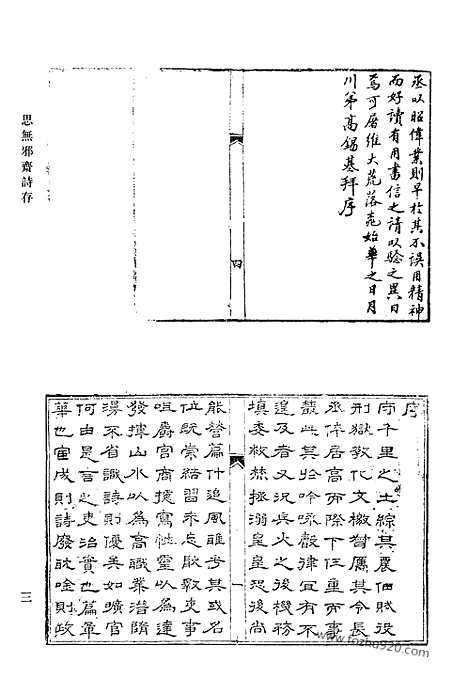 丞以昭偉業則早於其不誤用精神
而好讀有用書信之請以驗之異日
焉可屠維大荒落㐬始華之日月
川弟高錫基拜序
四
思無邪齋詩存
序
守千里之土綜其農佃賦役
刑獄教化文檄胥屬其令長
丞倅居高而際下任重而事
叢此其於吟咏觳律宜有不
遑及者又況兵火之後機務
填委救愁拯溺皇皇恐後尚
能營篇什追風雅乎其或名
位旣崇結習未忘敭敭吏事
咀嚼宮商攄寫性靈以為達
發揮山水以為高職業潛隳
漫不省識詩則優美如曠官
何由是言之吏治實也篇章
華也宦成則詩廢耽唫則政
一
三
www.fozhu920.com